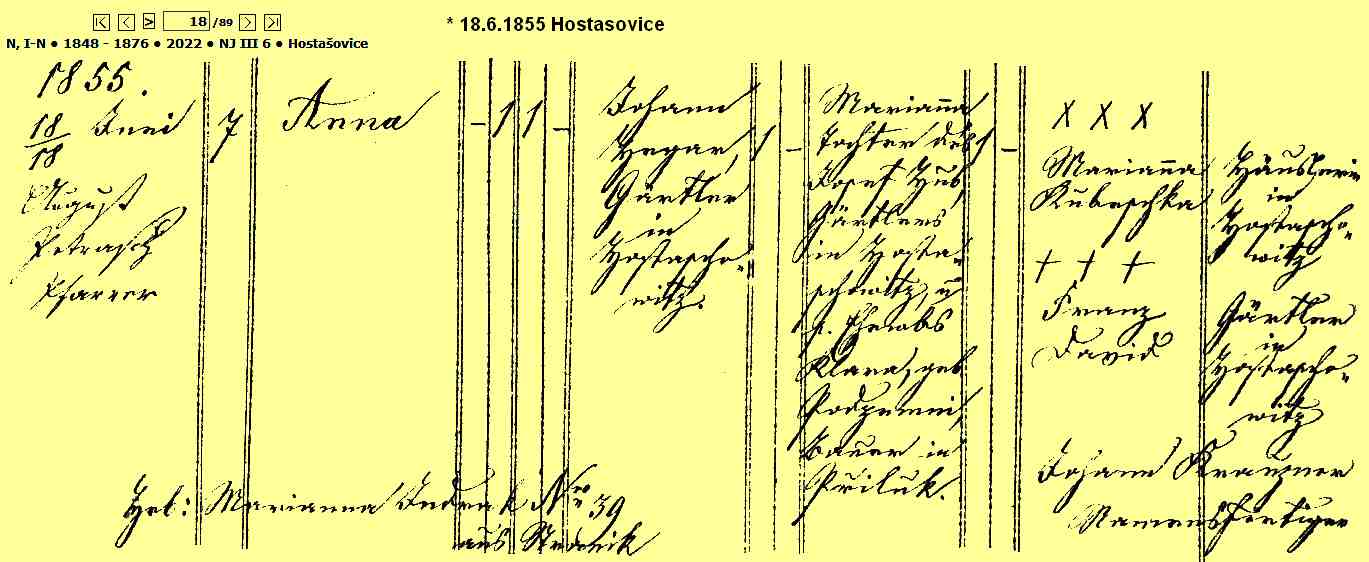 18 /89
* 18.6.1855 Hostasovice
N, I-N ● 1848 - 1876 ● 2022 ● NJ III 6 ● Hostašovice
1855.
18/18 Juni
August
Petrasch
Pfarrer
7
Anna
- 1 1 -
Johann
Hegar,
Gärtler
in
Hostascho-
witz.
1 -
Marianna
Tochter des
Josef Hub,
Gärtlers
in Hosta-
schowitz, u
s. Eheweibs
Klara, geb
Podzemni,
Bauer in
Přiluk.
1 -
X X X
Marianna
Kubeschka
+ + +
Franz
David
Häuslerin
in
Hostascho-
witz
Gärtler
in
Hostascho-
witz
Johann Kranzner
Namensfertiger
Heb: Marianna Indrak Nro 39
aus Stranik